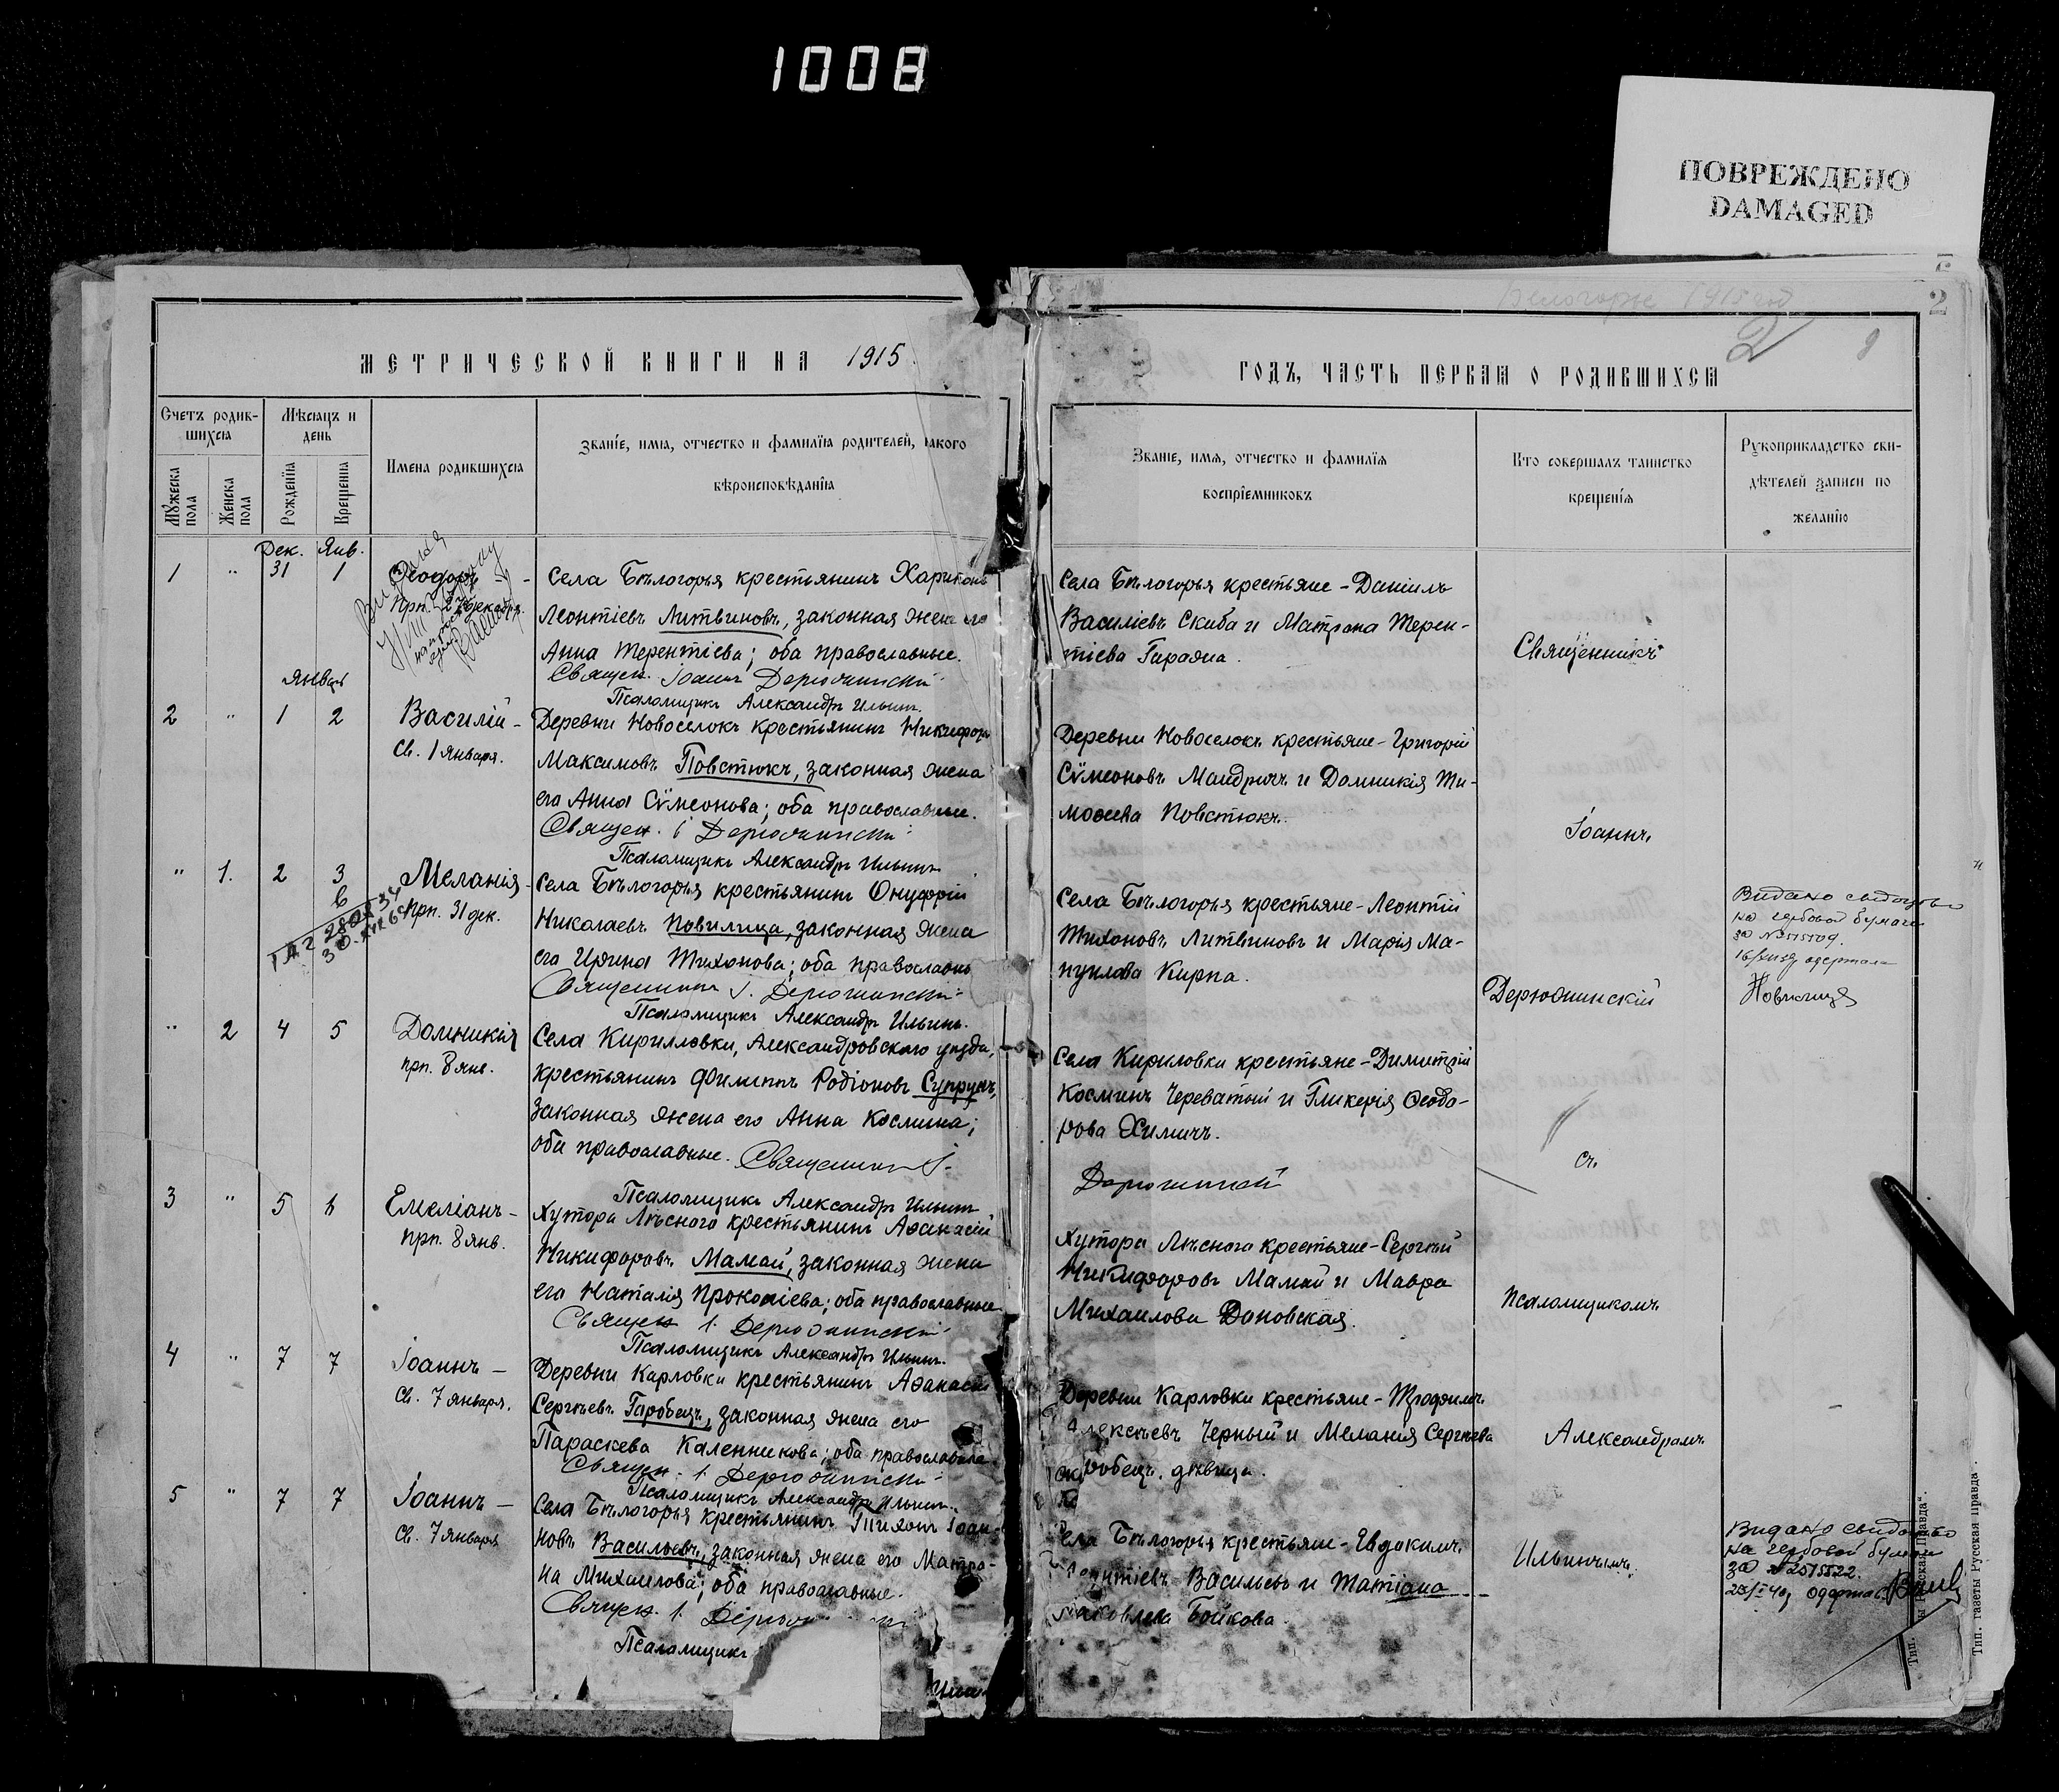 1008
ПОВРЕЖДЕНО
DAMAGED
Белогорье 1915 год
2
МЕТРИЧЕСКОЙ КНИГИ НА 1915
ГОДЪ, ЧАСТЬ ПЕРВАЯ О РОДИВШИХСЯ
Счетъ родив-
шихся
Мѣсяцъ и
день
Мужеска
пола
Женска
пола
Рожденія
Крещенія
Имена родившихся
Званіе, имя, отчество и фамилія родителей, какого
вѣроисповѣданія
Званіе, имя, отчество и фамилія
воспріемниковъ
Кто совершалъ таинство
крещенія
Рукоприкладство сви-
дѣтелей записи по
желанію
Дек. Янв.
1 " 31 1 Ѳеодоръ -
Прп. 27 декабря.
Села Бѣлогорья крестьянинъ Харитонъ
Леонтіевъ Литвиновъ, законная жена его
Анна Терентіева; оба православные.
Священ. Іоаннъ Дерюжинскій
Псаломщикъ Александръ Ильинъ.
Села Бѣлогорья крестьяне - Даніилъ
Василіевъ Скиба и Матрона Терен-
тіева Гаража.
Январь
2 " 1 2 Василій -
Св. 1 января.
Деревни Новоселокъ крестьянинъ Никифоръ
Максимовъ Повстюкъ, законная жена
его Анна Сѵмеонова; оба православные.
Священ. І Дерюжинскій
Псаломщикъ Александръ Ильинъ
Деревни Новоселокъ крестьяне - Григорій
Сѵмеоновъ Мандричъ и Домникія Ти-
моѳеева Повстюкъ.
" 1. 2 3 Меланія -
прп. 31 дек.
Села Бѣлогорья крестьянинъ Онуфрій
Николаевъ Повилица, законная жена
его Ирина Тихонова; оба православные
Священникъ І. Дерюжинскій
Псаломщикъ Александръ Ильинъ.
Села Бѣлогорья крестьяне - Леонтій
Тихоновъ Литвиновъ и Марія Ма-
нуилова Кирпа.
Видано свидоцтво
на гербовой бумаге
за №
одержала
" 2 4 5 Домникія
прп. 8 янв.
Села Кирилловки, Александровского уѣзда,
крестьянинъ Филиппъ Родіоновъ Супрунъ,
законная жена его Анна Космина;
оба православные. Священникъ І.
Дерюжинскій
Псаломщикъ Александръ Ильинъ
Села Кириловки крестьяне - Димитрій
Косминъ Череватый и Гликерія Ѳеодо-
рова Химичъ.
3 " 5 6 Емеліанъ -
прп. 8 янв.
Хутора Лѣсного крестьянинъ Аѳанасій
Никифоровъ Мамай, законная жена
его Наталія Прокопіева; оба православные
Священ І. Дерюжинскій
Псаломщикъ Александръ Ильинъ.
Хутора Лѣсного крестьяне - Сергѣй
Никифоровъ Мамай и Мавра
Михаилова Дановская.
4 " 7 7 Іоаннъ -
Св. 7 января.
Деревни Карловки крестьянинъ Аѳанасій
Сергѣевъ Гаробецъ, законная жена его
Параскева Каленникова; оба православные
Священ. І. Дерюжинскій
Псаломщикъ Александръ Ильинъ.
Деревни Карловки крестьяне - Трофимъ
Алексѣевъ Черный и Меланія Сергѣева
робецъ, дѣвица.
5 " 7 7 Іоаннъ -
Св. 7 января
Села Бѣлогорья крестьянинъ Тихонъ Іоан-
новъ Васильевъ, законная жена его Матро-
на Михаилова; оба православные.
Священ. І.
Псаломщикъ
Села Бѣлогорья крестьяне - Евдокимъ
Васильевъ и Татіана
Яковлева Бойкова.
Видано свидоцтво
на гербовой бумаге
за №
Священникъ
Іоаннъ
Дерюжинскій
съ
псаломщикомъ
Александромъ
Ильинымъ.
Тип. газеты Русская Правда.